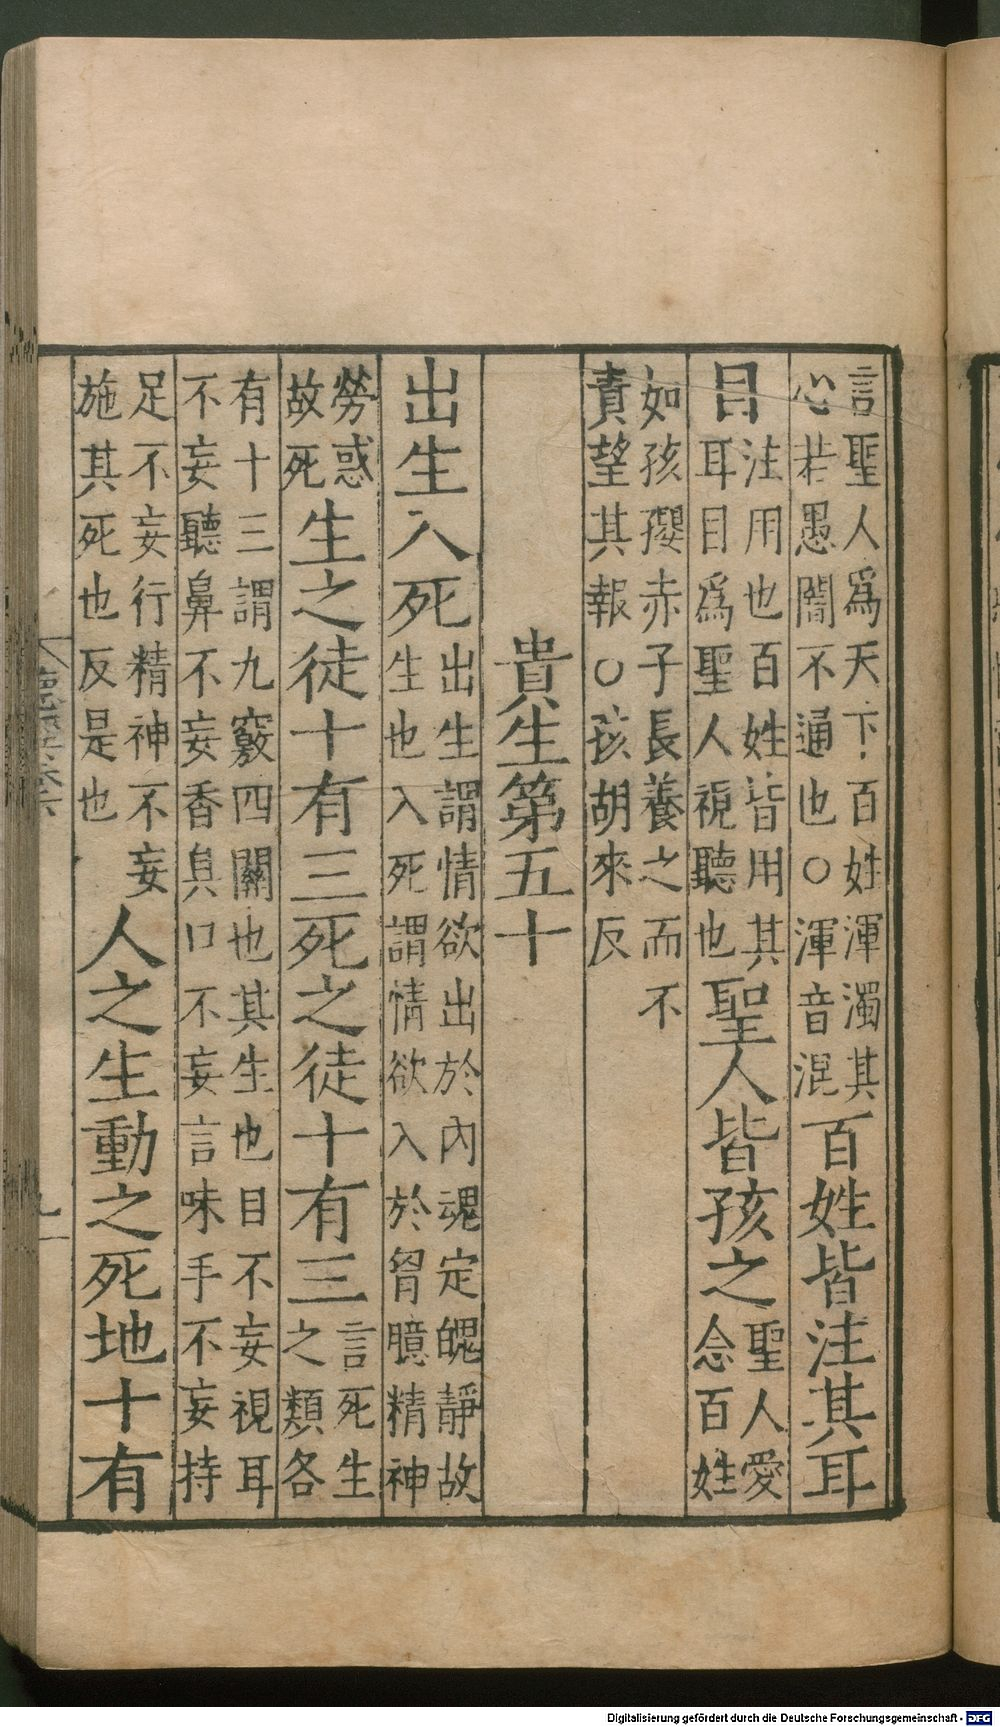 言聖人爲天下百姓渾濁其
心若愚闇不通也○渾音混
百姓皆注其耳
目
注用也百姓皆用其
耳目爲聖人視聽也
聖人皆孩之
聖人愛
念百姓
如孩孾赤子長養之而不
責望其報○孩胡來反
貴生第五十
出生入死
出生謂情欲出於內魂定魄靜故
生也入死謂情欲入於胷臆精神
勞惑
故死
生之徒十有三死之徒十有三
言死生
之類各
有十三謂九竅四關也其生也目不妄視耳
不妄聽鼻不妄香臭口不妄言味手不妄持
足不妄行精神不妄
施其死也反是也
人之生動之死地十有
Digitalisierung gefördert durch die Deutsche Forschungsgemeinschaft - DFG